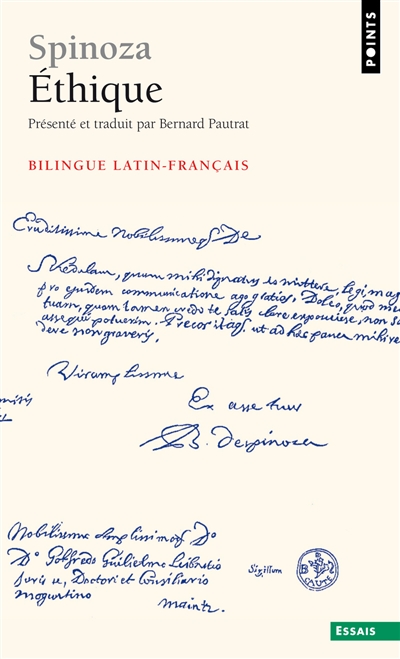 Spinoza
Éthique
Présenté et traduit par Bernard Pautrat
POINTS
BILINGUE LATIN-FRANÇAIS
Eruditissime Nobilissimeq De
Schedulam, quam mihi dignatus es mittere, legi mag
pro ejusdem communicatione ago gratias, Doleo, quod me
tuam, quam tamen credo te satis clare exposuisse, non sa
assequi potuerim. Precor itaq ut ad haec pauca mihi re
dere non graveris,
Vir amplissime
mitis
Ex asse tuus
B. despinoza
Nobilissimo Amplissimoq Do
Do Gotfredo Guilielmo Leibnitio
Juris u, Doctori et Consiliario
Moguntino
maintz
Sigillum
B
CAUTE
ESSAIS